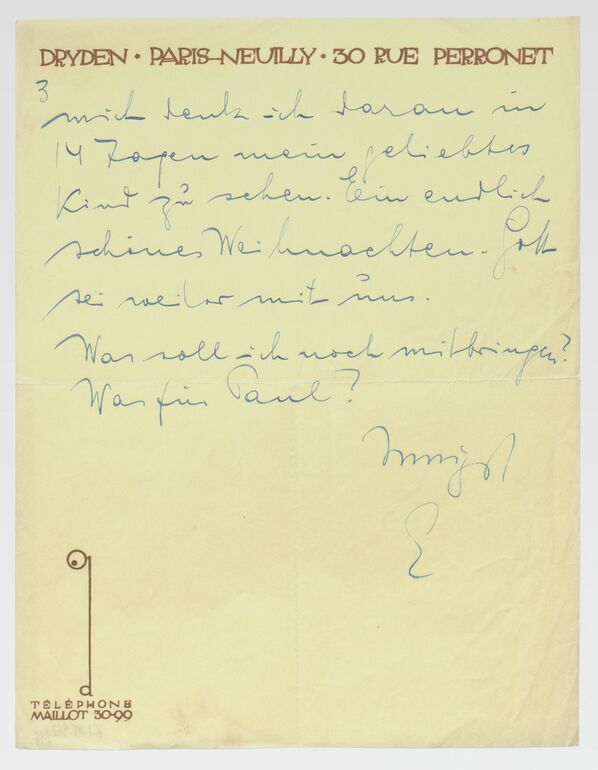 DRYDEN · PARIS-NEUILLY · 30 RUE PERRONET
3
mich denk ich daran in
14 Tagen mein geliebtes
Kind zu sehen. Ein endlich
schönes Weihnachten. Gott
sei weiter mit uns.
Was soll ich noch mitbringen?
Was für Paul?
Innigst
E
TÉLÉPHONE
MAILLOT 30-99